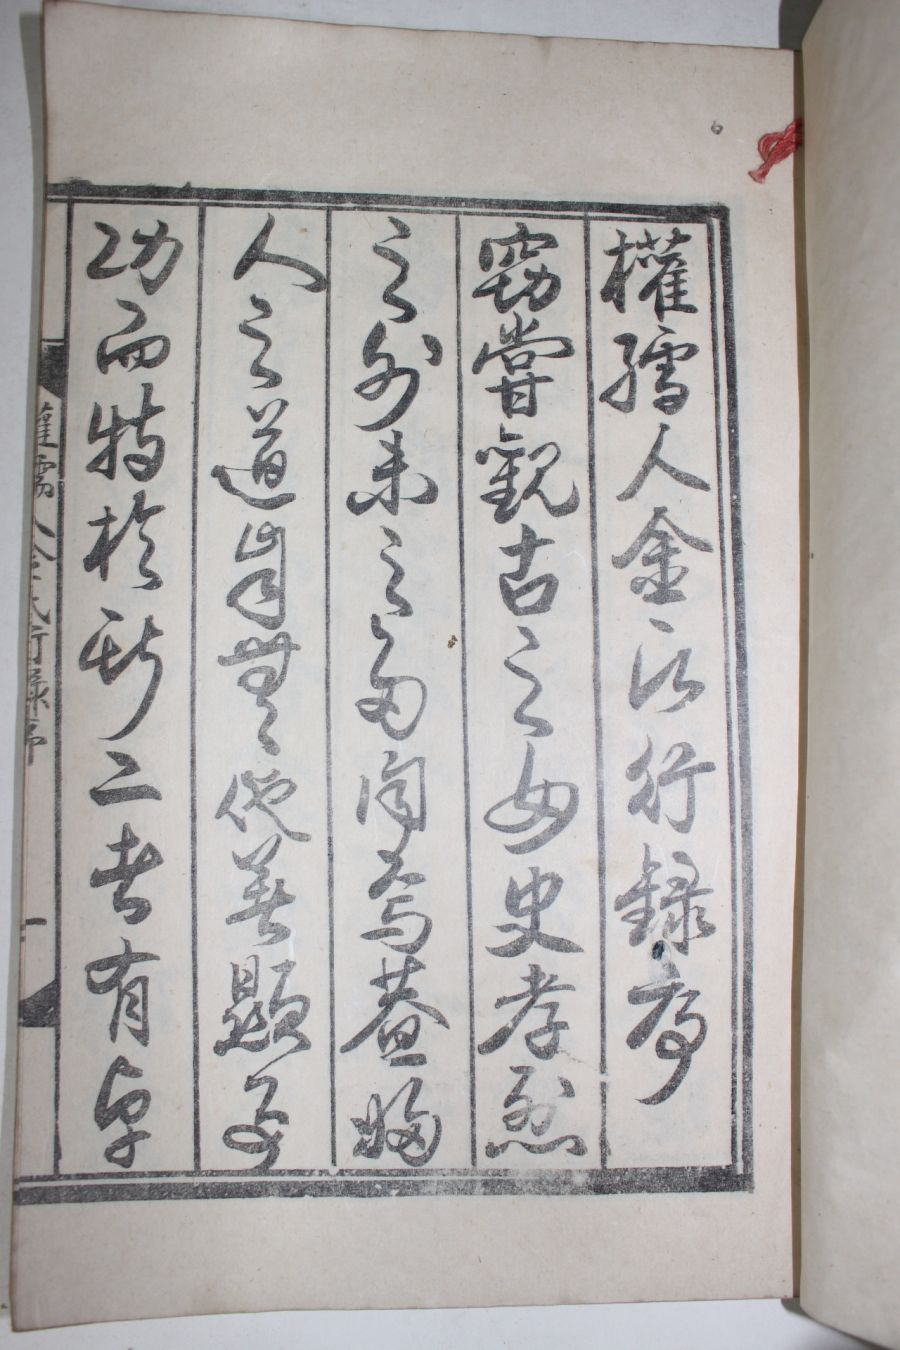 權孺人金氏行錄序
竊嘗觀古之女史孝烈
之外未之多聞焉蓋婦
人之道貞無他善顯
功而特於斯二者有卓
權孺人金氏行錄序
一